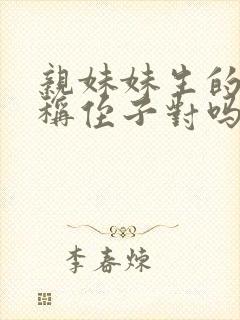 親妹妹生的
稱侄子對嗎
李春煉